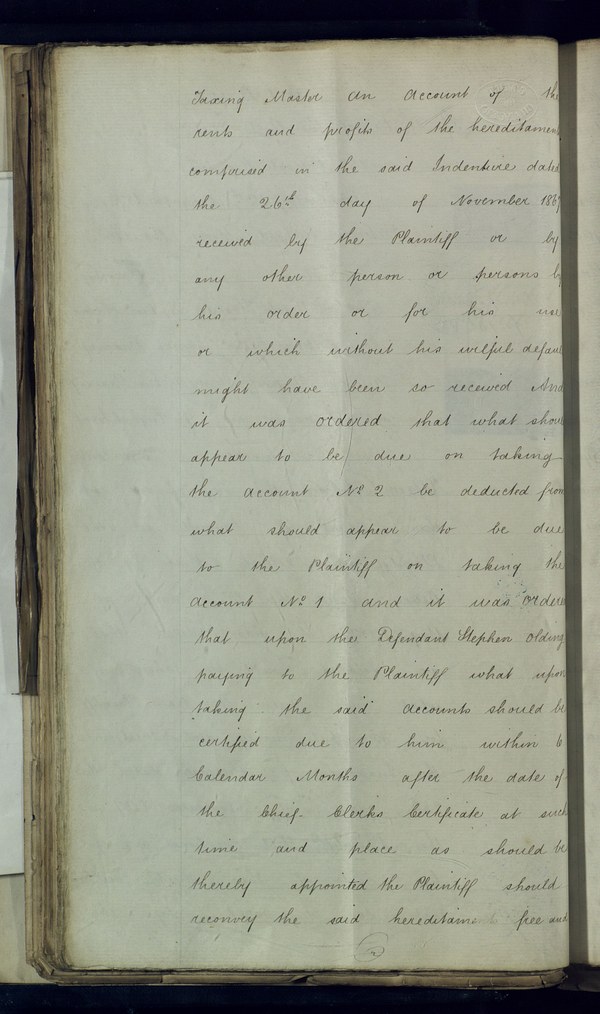 Taxing Master an account of the
rents and profits of the hereditamen
comprised in the said Indenture dated
the 26th day of November 186
received by the Plaintiff or by
any other person or persons by
his order or for his use
or which without his wilful defaul
might have been so received And
it was ordered that what shoul
appear to be due on taking
the account No 2 be deducted from
what should appear to be due
to the Plaintiff on taking the
account No 1 and it was ordere
that upon the Defendant Stephen Olding
paying to the Plaintiff what upon
taking the said accounts should be
certified due to him within 6
Calendar Months after the date of
the Chief Clerks Certificate at such
time and place as should be
thereby appointed the Plaintiff should
reconvey the said hereditam free and